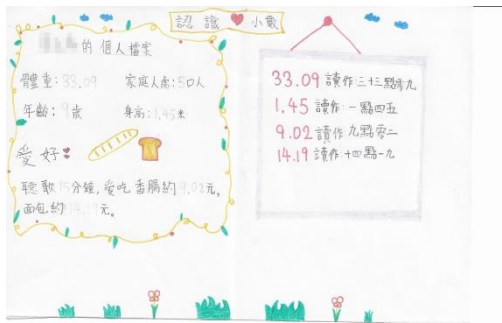 認識 小數
的個人檔案
體重:33.09 家庭人數:5口人
年齡:9歲 身高:1.45米
愛好
聽歌15分鐘,愛吃香腸約9.02元,
面包約14.19元。
33.09讀作:三十三點零九
1.45讀作一點四五
9.02讀作九點零二
14.19讀作十四點一九